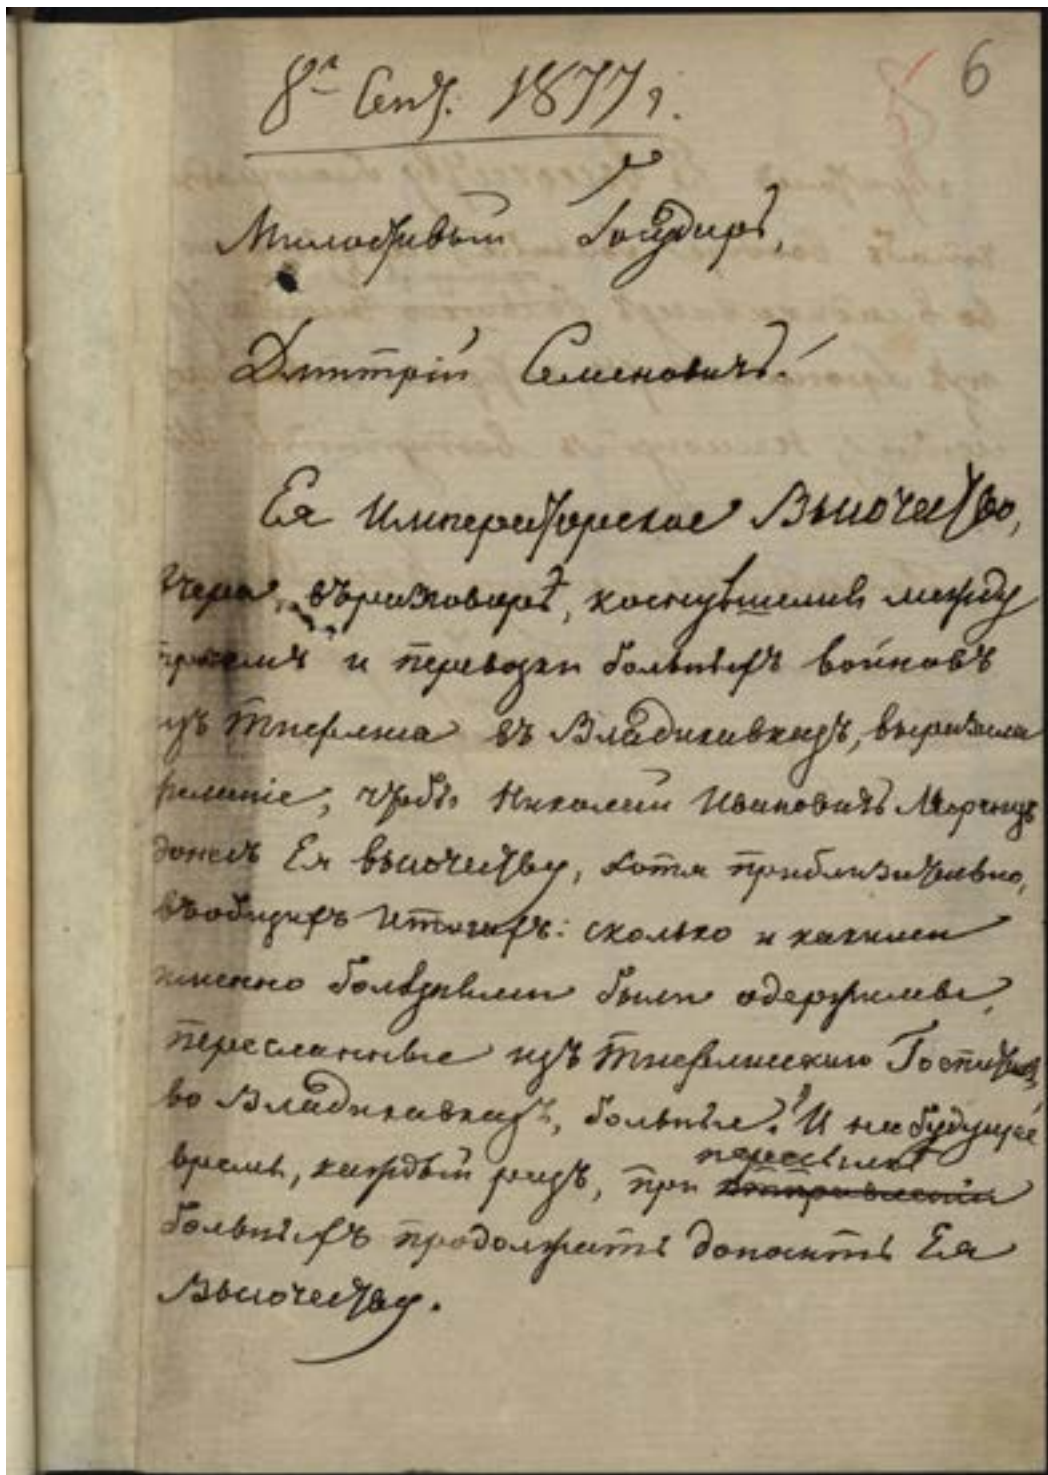 6
8го Сент. 1877 г.
Милостивый Государь,
Дмитрій Семеновичъ!
Ея Императорское Высочество,
Вчера, въ разговорѣ, коснувшемся между
прочимъ и перевозки больныхъ воиновъ
изъ Тифлиса въ Владикавказъ, выразила
желаніе, чтобы Николай Ивановичъ
донесъ Ея Высочеству, хотя приблизительно,
въ общихъ итогахъ: сколько и какими
именно болѣзнями были одержимы,
пересланные изъ Тифлисскаго Госпиталя,
во Владикавказъ, больные? И на будущее
время, каждый разъ, при пересылкѣ
больныхъ продолжать доносить Ея
Высочеству.